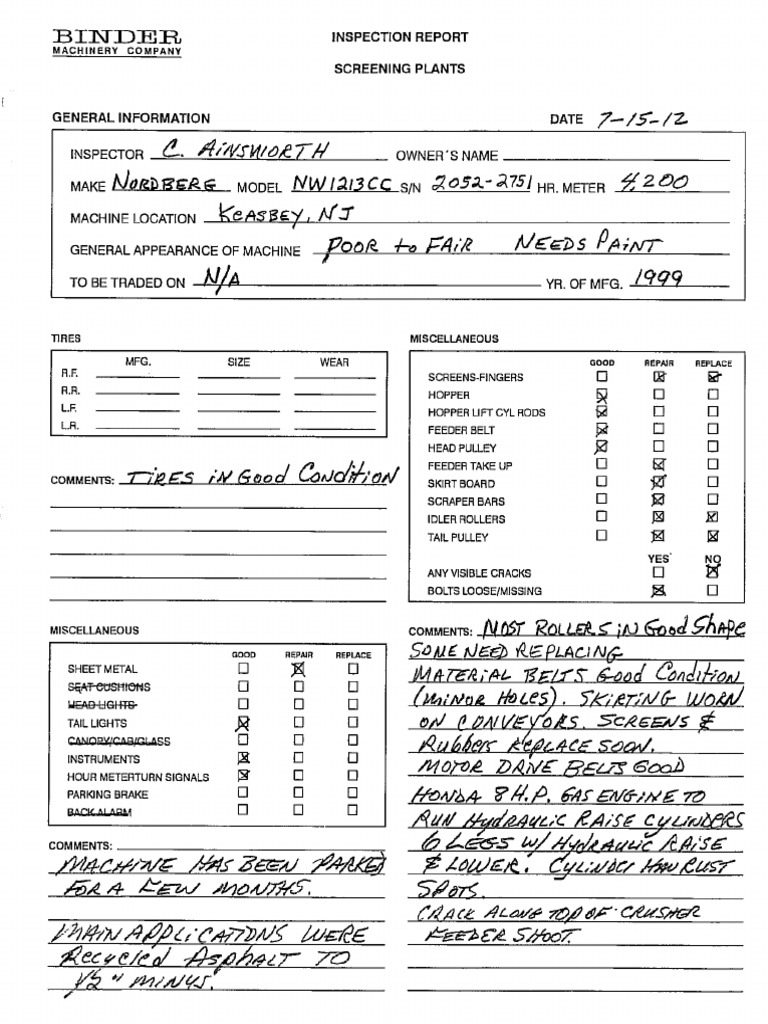 BINDER
MACHINERY COMPANY
INSPECTION REPORT
SCREENING PLANTS
GENERAL INFORMATION
DATE 7-15-12
INSPECTOR C. AINSWORTH OWNER'S NAME
MAKE NORDBERG MODEL NW1213CC S/N 2052-2751 HR. METER 4,200
MACHINE LOCATION KEASBEY, NJ
GENERAL APPEARANCE OF MACHINE POOR to FAIR NEEDS PAINT
TO BE TRADED ON N/A YR. OF MFG. 1999
TIRES
MFG. SIZE WEAR
R.F.
R.R.
L.F.
L.R.
COMMENTS: TIRES iN Good CoNditioN
MISCELLANEOUS
GOOD REPAIR REPLACE
SCREENS-FINGERS
HOPPER
HOPPER LIFT CYL RODS
FEEDER BELT
HEAD PULLEY
FEEDER TAKE UP
SKIRT BOARD
SCRAPER BARS
IDLER ROLLERS
TAIL PULLEY
YES NO
ANY VISIBLE CRACKS
BOLTS LOOSE/MISSING
MISCELLANEOUS
GOOD REPAIR REPLACE
SHEET METAL
SEAT CUSHIONS
HEAD LIGHTS
TAIL LIGHTS
CANOPY/CAB/GLASS
INSTRUMENTS
HOUR METERTURN SIGNALS
PARKING BRAKE
BACK ALARM
COMMENTS:
MACHINE HAS BEEN PARKED
FOR A FEW MONTHS.
MAIN APPLICATIONS WERE
Recycled ASphALT TO
1/2" MINUS.
COMMENTS: MOST ROLLERS iN Good ShApe
SOME NEED REPLACING
MATERIAL BELTS Good CoNditioN
(MINOR HOLES). SKIRTING WORN
ON CONVEYORS. SCREENS &
Rubbers REPLACE SOON.
MOTOR DRIVE BELTS GOOD
HONDA 8 H.P. GAS ENGINE TO
RUN HydRAULIC RAISE CYLINDERS
6 LEGS W/ HydRAULIC RAISE
& LOWER. CYLINDER HAVE RUST
SPOTS.
CRACK ALONG TOP OF CRUSHER
FEEDER SHOOT.